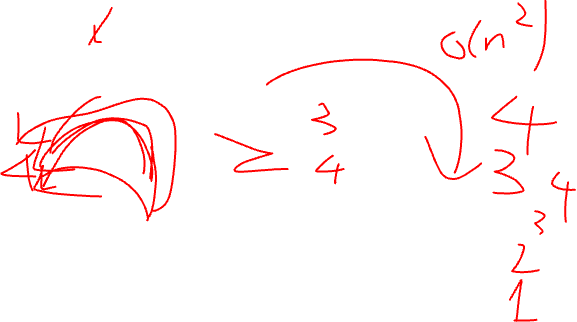 O(n²)
3
4
4
3
4
3
2
1